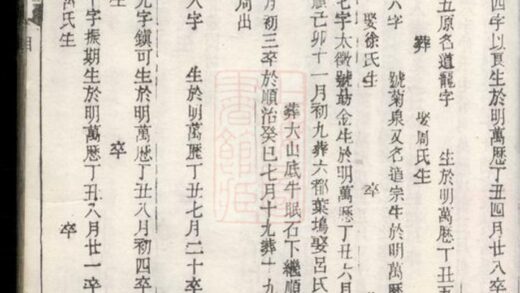 四字以良生於明萬曆丁丑四月廿八卒
五原名道龍字 生於明萬曆丁丑五
葬 娶周氏生
六字 號菊泉又名道宗生於明萬曆
娶徐氏生 卒
七字太徵號勗金生於明萬曆丁丑六月
應己卯十一月初九葬六都葉塢娶呂氏
葬大山底牛眠石下繼順
月初三卒於順治癸巳七月十九葬十九
周出
八字 生於明萬曆丁丑七月二十卒
九字鎮可生於明萬曆丁丑八月初四卒
生 卒
十字振期生於明萬曆丁丑八月廿一卒
卒